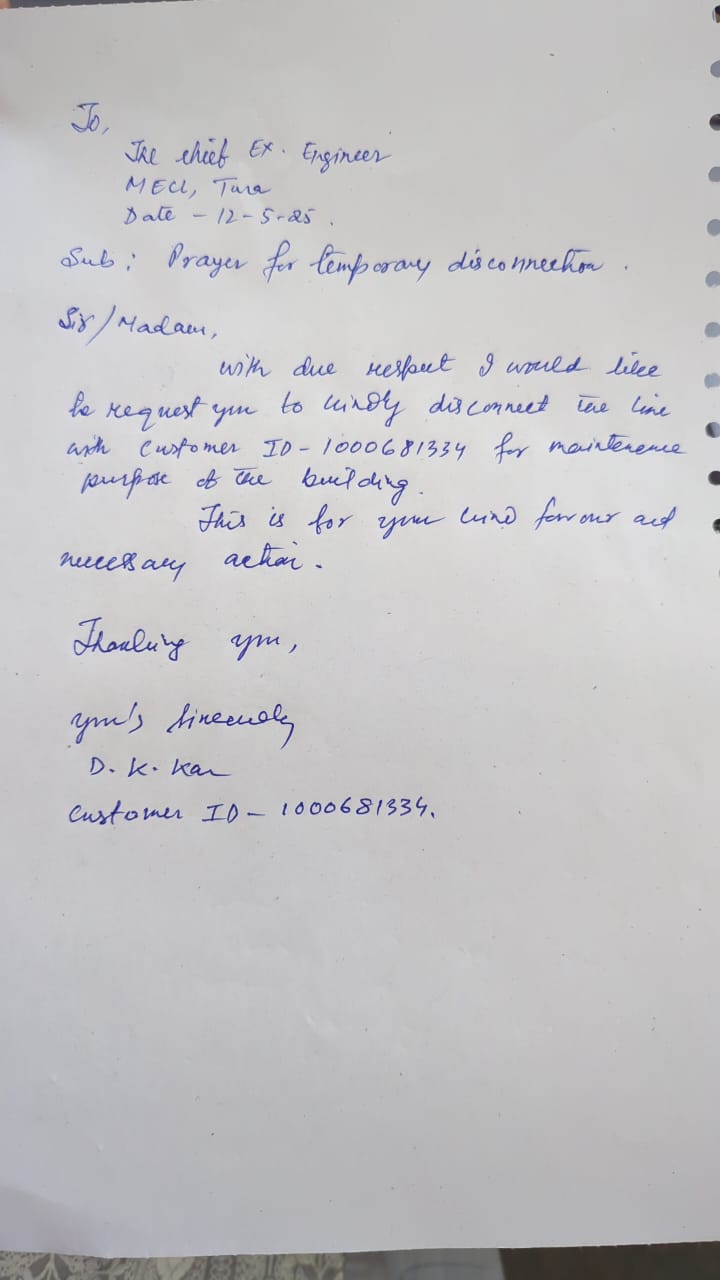 To,
The chief Ex. Engineer
MECL, Tura
Date - 12-5-25.
Sub: Prayer for temporary disconnection.
Sir/Madam,
with due respect I would like
to request you to kindly disconnect the line
with Customer ID-1000681334 for maintenence
purpose of the building.
This is for your kind favour and
necessary action.
Thanking you,
your's sincerely
D. K. Kar
Customer ID - 1000681334.